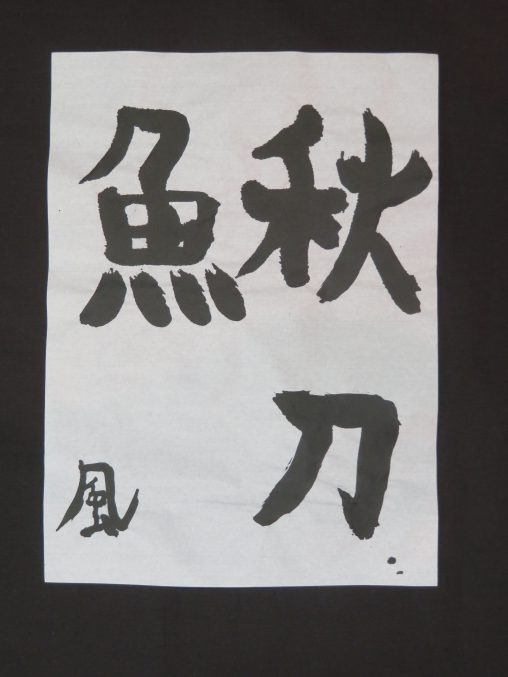 秋刀
魚
風